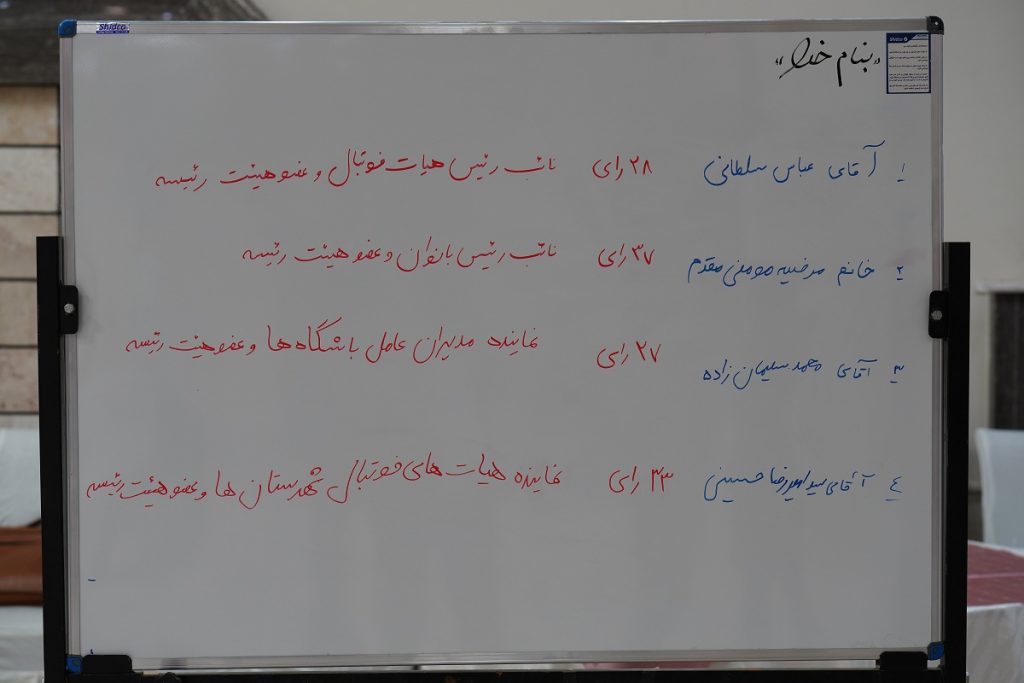 Shidco
«بنام خدا»
۱ آقای عباس سلطانی ۲۸ رای نائب رئیس هیات فوتبال و عضو هیئت رئیسه
۲ خانم مرضیه مومنی مقدم ۳۷ رای نائب رئیس بانوان و عضو هیئت رئیسه
۳ آقای محمد سلیمان زاده ۲۷ رای نماینده مدیران عامل باشگاه ها و عضو هیئت رئیسه
٤ آقای سید امیررضا حسینی ۲۳ رای نماینده هیات های فوتبال شهرستان ها و عضو هیئت رئیسه